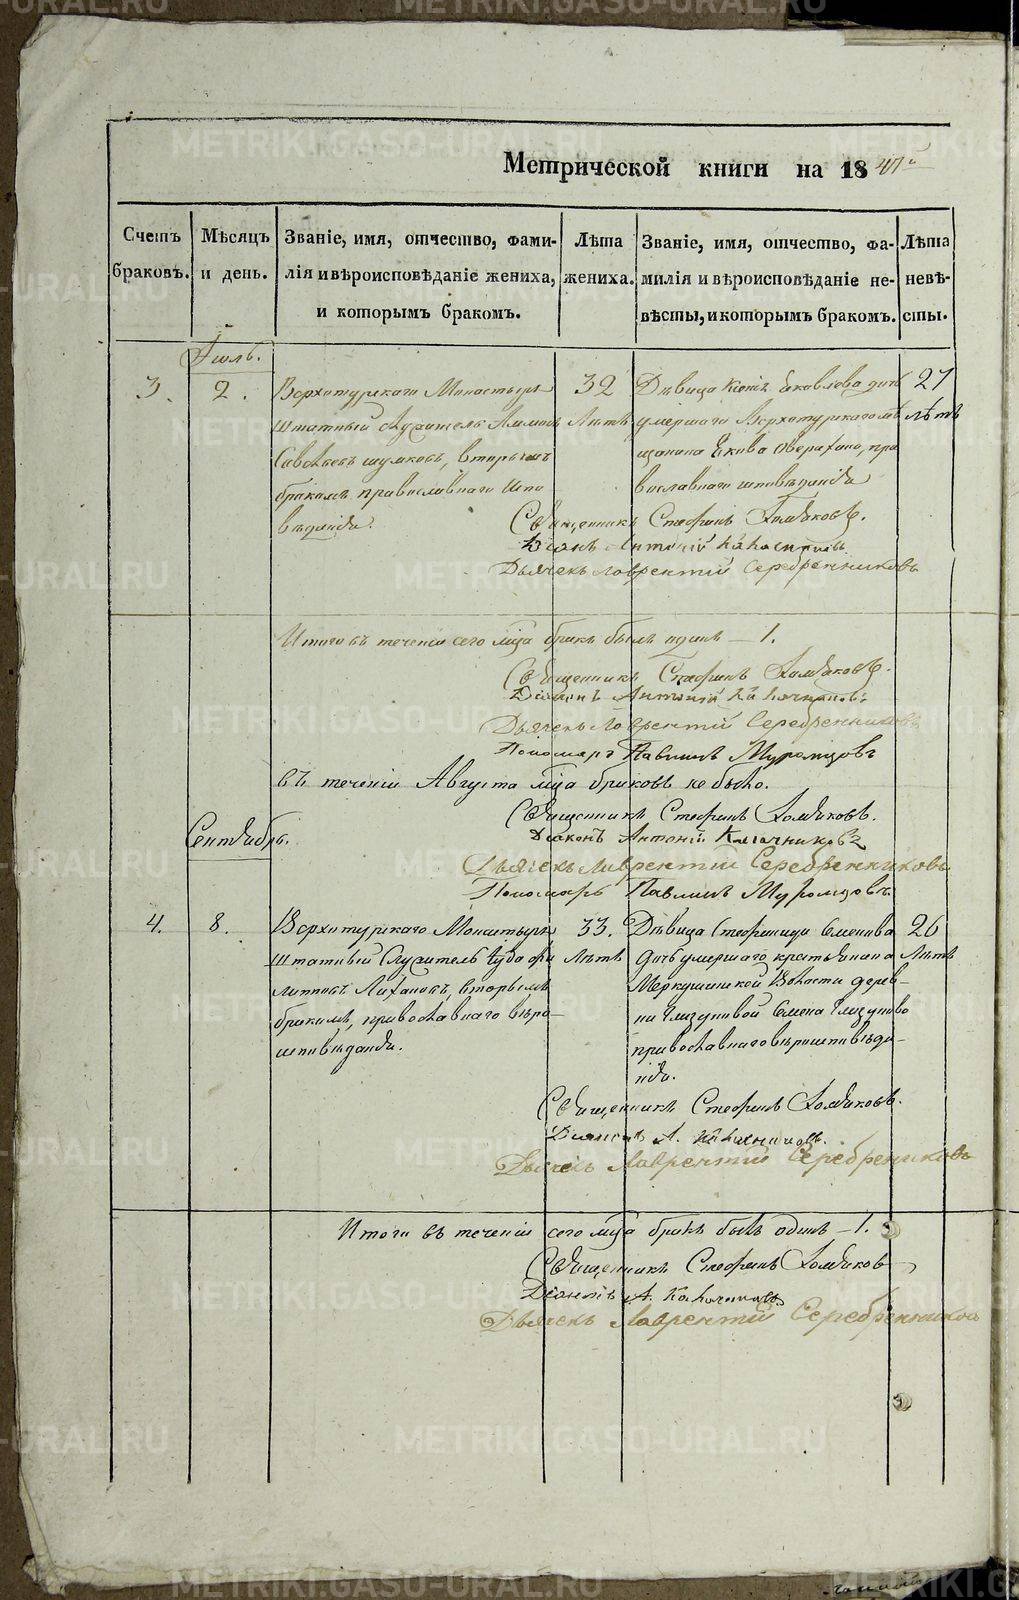 Метрической книги на 18
Счетъ браковъ.
Мѣсяцъ и день.
Званіе, имя, отчество, фами-
лія и вѣроисповѣданіе жениха,
и которымъ бракомъ.
Лѣта
жениха.
Званіе, имя, отчество, фа-
милія и вѣроисповѣданіе не-
вѣсты, и которымъ бракомъ.
Лѣта
невѣ-
сты.
Іюль.
3.
2.
Верхотурскаго Монастыря
штатный служитель
Савватѣевъ шумковъ, вторымъ
бракомъ православнаго испо
вѣданія.
32
Лѣтъ
Дѣвица Яковлева дочь
умершаго Верхотурскаго мѣ
щанина Якова пра
вославнаго исповѣданія
27
лѣтъ
Священникъ Стефанъ Хомяковъ.
Діаконъ Антоній Калачниковъ
Дьячекъ Лаврентій Серебренниковъ
Итого въ теченіи сего мца бракъ былъ одинъ — 1.
Священникъ Стефанъ Хомяковъ.
Діаконъ Антоній Калачниковъ
Дьячекъ Лаврентій Серебренниковъ
Пономарь Павлинъ Муромцовъ
въ теченіи Августа мца браковъ не было.
Священникъ Стефанъ Хомяковъ.
Діаконъ Антоній Калачниковъ
Дьячекъ Лаврентій Серебренниковъ
Пономарь Павлинъ Муромцовъ
Сентябрь.
4.
8.
Верхотурскаго Монастыря
штатный Служитель
Лихановъ, вторымъ
бракомъ, православнаго вѣро-
исповѣданія.
33.
Лѣтъ
Дѣвица Стефанида Семенова
дочь умершаго крестьянина
Меркушинской Волости дерев-
ни Глазуновой Семена Глазунова
православнаго вѣроисповѣда-
нія.
26
Лѣтъ
Священникъ Стефанъ Хомяковъ.
Діаконъ А. Калачниковъ.
Дьячекъ Лаврентій Серебрениковъ
Итого въ теченіи сего мца бракъ былъ одинъ — 1.
Священникъ Стефанъ Хомяковъ
Діаконъ А. Калачниковъ
Дьячекъ Лаврентій Серебренниковъ
METRIKI.GASO-URAL.RU